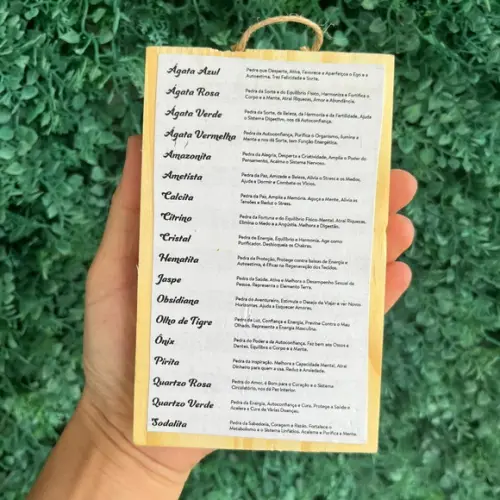 Ágata Azul
Pedra que Desperta, Ativa, Favorece e Aperfeiçoa o Ego e a
Autoestima. Traz Felicidade e Sorte.
Ágata Rosa
Pedra da Sorte e do Equilíbrio Físico, Harmoniza e Fortifica o
Corpo e a Mente. Atrai Riquezas, Amor e Abundância.
Ágata Verde
Pedra da Sorte, da Beleza, da Harmonia e da Fertilidade, Ajuda
o Sistema Digestivo, nos dá Autoconfiança.
Ágata Vermelha
Pedra da Autoconfiança, Purifica o Organismo, Ilumina a
Mente e nos dá Sorte, tem Função Energética.
Amazonita
Pedra da Alegria, Desperta a Criatividade, Amplia o Poder do
Pensamento, Acalma o Sistema Nervoso.
Ametista
Pedra da Paz, Amizade e Beleza, Alivia o Stress e os Medos,
Ajuda a Dormir e Combate os Vícios.
Calcita
Pedra da Paz, Amplia a Memória. Aguça a Mente, Alivia as
Tensões e Reduz o Stress.
Citrino
Pedra da Fortuna e do Equilíbrio Físico-Mental. Atrai Riquezas,
Elimina o Medo e a Angústia. Melhora a Digestão.
Cristal
Pedra da Energia, Equilíbrio e Harmonia. Age como
Purificador. Desbloqueia os Chakras.
Hematita
Pedra da Proteção, Protege contra baixas de Energia e
Autoestima, é Eficaz na Regeneração dos Tecidos.
Jaspe
Pedra da Saúde, Ativa e Melhora o Desempenho Sexual da
Pessoa. Representa o Elemento Terra.
Obsidiana
Pedra do Aventureiro, Estimula o Desejo de Viajar e ver Novos
Horizontes. Ajuda a Esquecer Amores.
Olho de Tigre
Pedra da Luz, Confiança e Energia, Previne Contra o Mau
Olhado. Representa a Energia Masculina.
Ônix
Pedra do Poder e de Autoconfiança. Faz bem aos Ossos e
Dentes. Equilibra o Corpo e a Mente.
Pirita
Pedra da Inspiração. Melhora a Capacidade Mental, Atrai
Dinheiro para quem a usa. Reduz a Ansiedade.
Quartzo Rosa
Pedra do Amor, é Bom para o Coração e o Sistema
Circulatório, nos dá Paz Interior.
Quartzo Verde
Pedra da Energia, Autoconfiança e Cura. Protege a Saúde e
Acelera a Cura de Várias Doenças.
Sodalita
Pedra da Sabedoria, Coragem e Razão. Fortalece o
Metabolismo e o Sistema Linfático. Acalma e Purifica a Mente.